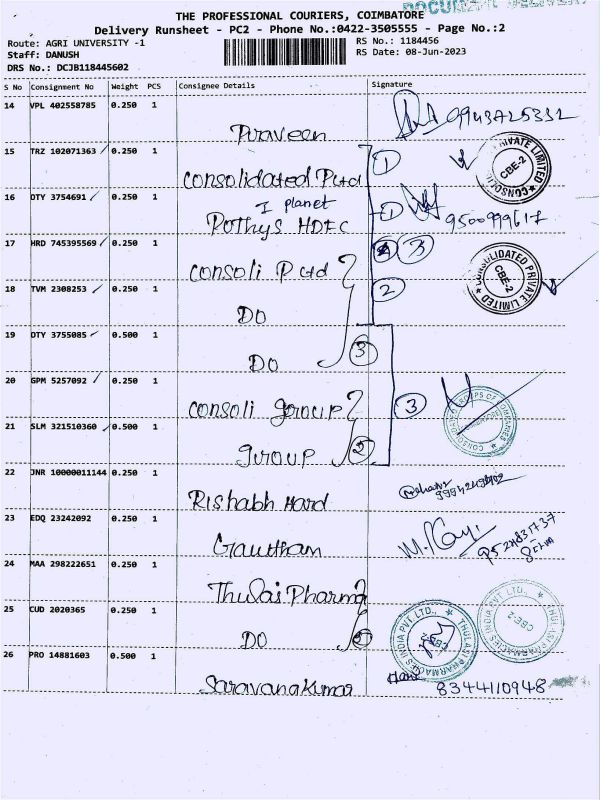 DOCUMENT DELIVERY
THE PROFESSIONAL COURIERS, COIMBATORE
Delivery Runsheet - PC2 - Phone No.:0422-3505555 - Page No.:2
Route: AGRI UNIVERSITY -1
RS No.: 1184456
Staff: DANUSH
RS Date: 08-Jun-2023
DRS No.: DCJB118445602
S No Consignment No Weight PCS Consignee Details Signature
14 VPL 402558785 0.250 1
Praveen 9943725332
15 TRZ 102071363 0.250 1
Consolidated Pvtd 1
PRIVATE LIMITED CBE-2 CONSOLI
16 OTY 3754691 0.250 1
I planet
Pothys HDFC 1 9500999617
17 HRD 745395569 0.250 1
Consoli Pvtd 3
CONSOLIDATED PRIVATE LIMITED CBE-2
18 TVM 2308253 0.250 1
DO 2
19 OTY 3755085 0.500 1
DO 3
20 GPM 5257092 0.250 1
Consoli group 3
CONSOLIDATED GROUPS OF COMPANIES
21 SLM 321510360 0.500 1
group 2
22 JNR 10000011144 0.250 1
Rishabh Hard
23 EDQ 23242092 0.250 1
Gautham
24 MAA 298222651 0.250 1
Thulasi Pharma
25 CUD 2020365 0.250 1
DO 2
THULASI PHARMACIES INDIA PVT LTD., CBE-2
THULASI PHARMACIES INDIA PVT LTD., CBE-2
26 PRO 14881603 0.500 1
Saravanakumar 8344110948